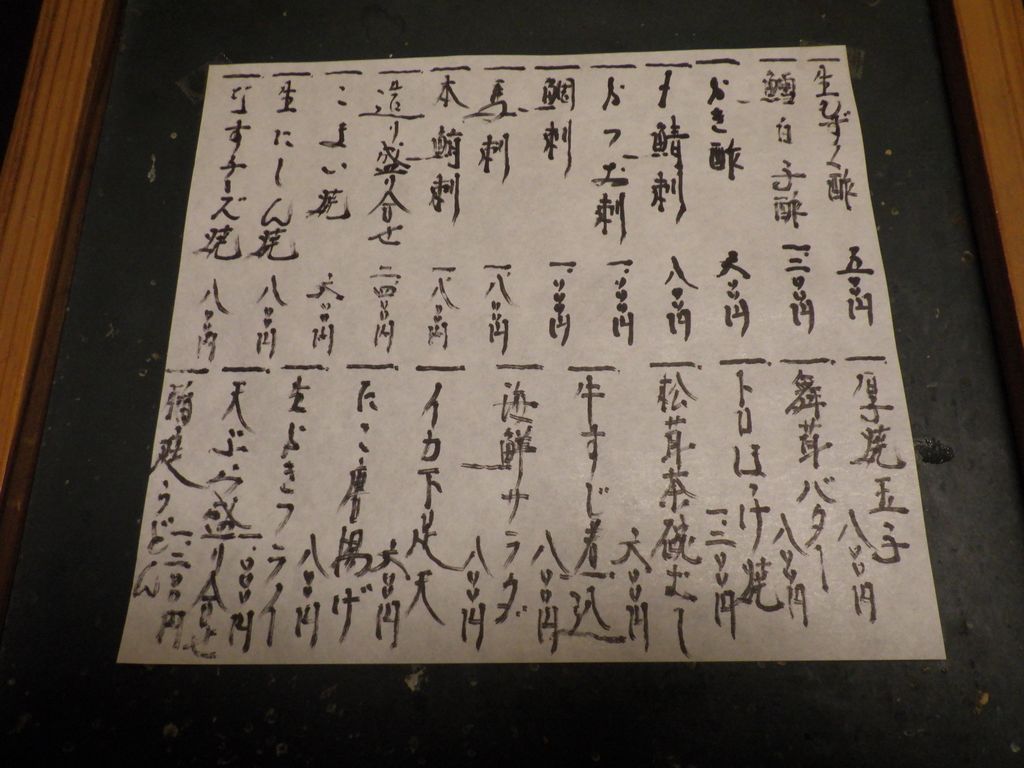 一 生もずく酢 五〇〇円
一 鱈白子酢 一、三〇〇円
一 かき酢 六〇〇円
一 〆鯖刺 八〇〇円
一 かつお刺 一、〇〇〇円
一 鯛刺 一、〇〇〇円
一 馬刺 一、八〇〇円
一 本鮪刺 一、八〇〇円
一 造り盛り合せ 二四〇〇円
一 こまい焼 六〇〇円
一 生にしん焼 八〇〇円
一 なすチーズ焼 八〇〇円
一 厚焼玉子 八〇〇円
一 舞茸バター 八〇〇円
一 トロほっけ焼 一、三〇〇円
一 松茸茶碗むし
一 牛すじ煮込 六〇〇円
一 海鮮サラダ 八〇〇円
一 イカ下足天 八〇〇円
一 たこ唐揚げ 六〇〇円
一 生かきフライ 八〇〇円
一 天ぷら盛り合せ 一、〇〇〇円
一 稲庭うどん 一、二〇〇円